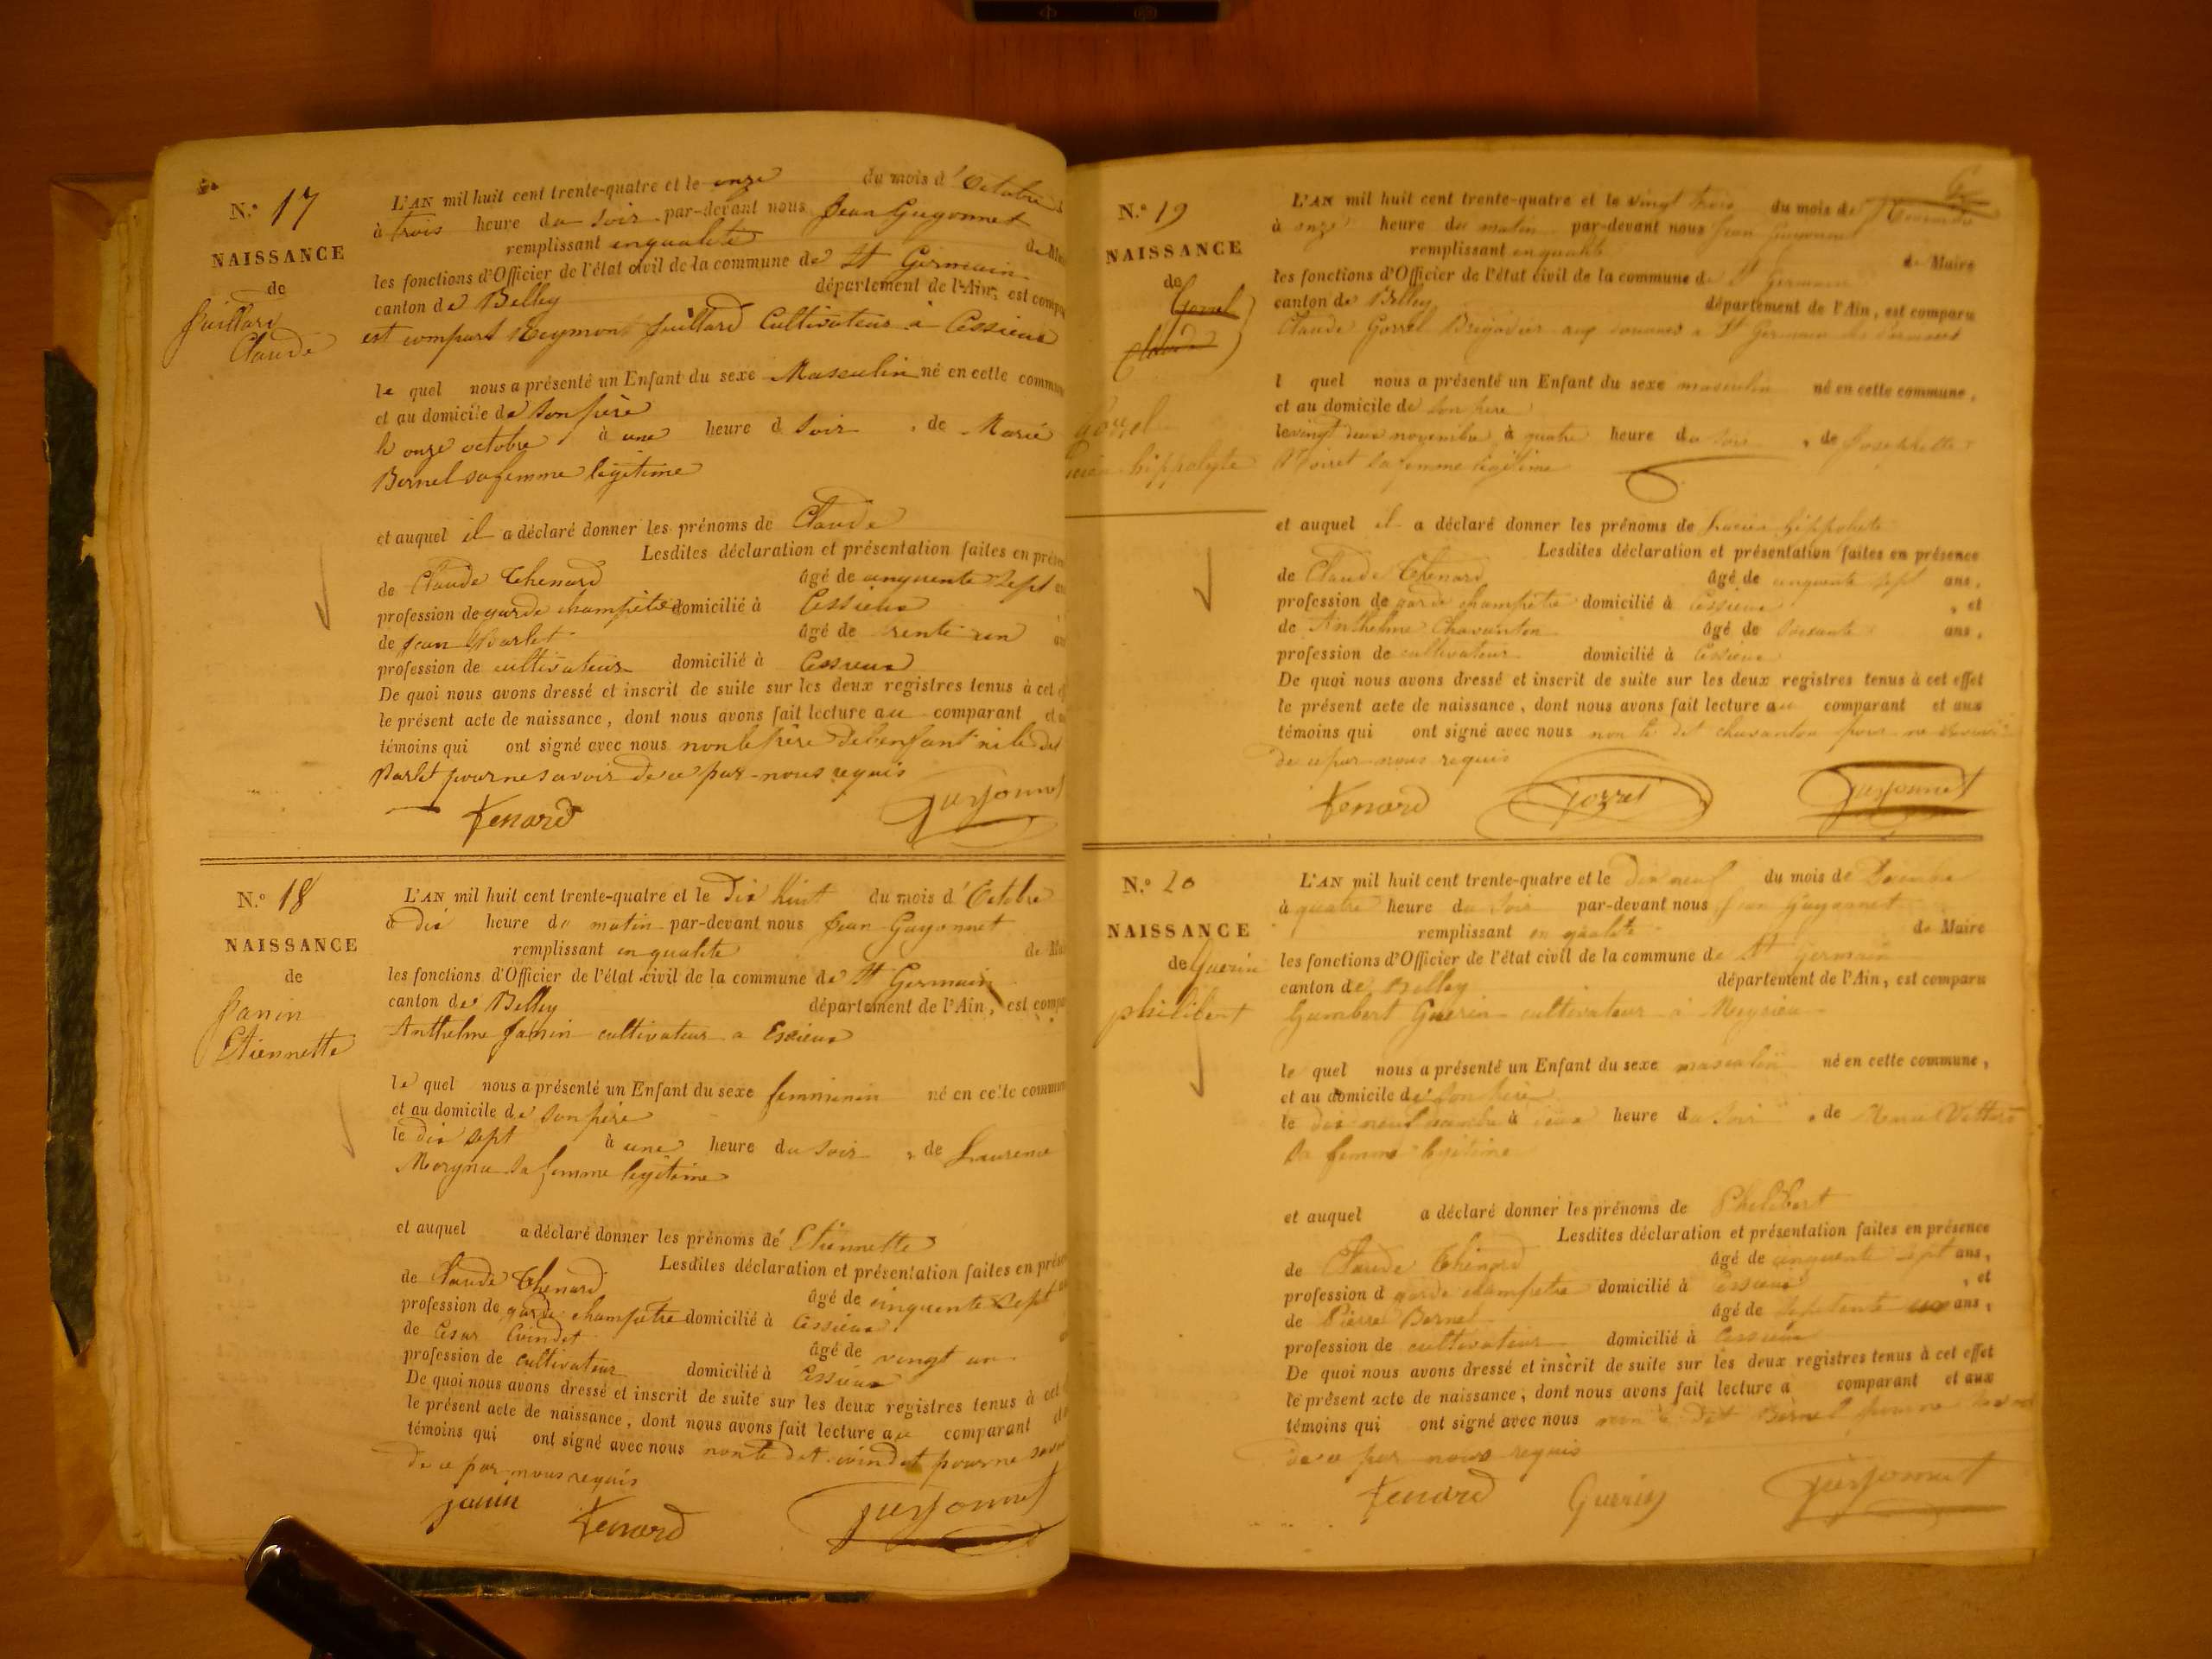 N.º 17
NAISSANCE
de
Juillard
Claude
L'AN mil huit cent trente-quatre et le onze du mois d'Octobre
à trois heure du soir par-devant nous Jean Guyonnet
remplissant enqualité de
les fonctions d'Officier de l'état civil de la commune de St Germain
canton de Belley département de l'Ain, est
est comparu Reymond Juillard Cultivateur à Cessieux
le quel nous a présenté un Enfant du sexe Masculin né en cette
et au domicile de Son père
le onze octobre à une heure d Soir, de Marie
Bernel sa femme légitime
et auquel il a déclaré donner les prénoms de Claude
Lesdites déclaration et présentation faites en
de Claude Thenard âgé de cinquante sept
profession de garde champêtre domicilié à Cessieux
de Jean Parlet âgé de trente un
profession de cultivateur domicilié à Cessieux
De quoi nous avons dressé et inscrit de suite sur les deux registres tenus à cet
le présent acte de naissance, dont nous avons fait lecture au comparant
témoins qui ont signé avec nous non le père de lenfant ni le dit
Parlet pour ne savoir de ce par-nous requis
tenard guyonnet
N.º 18
NAISSANCE
de
Janin
Etiennette
L'AN mil huit cent trente-quatre et le Dix huit du mois d'Octobre
à Dix heure du matin par-devant nous Jean Guyonnet
remplissant en qualité de
les fonctions d'Officier de l'état civil de la commune de St Germain
canton de Belley département de l'Ain, est
Anthelme Janin cultivateur a Essieux
le quel nous a présenté un Enfant du sexe femminin né en cette
et au domicile de Son père
le Dix sept à une heure du Soir, de Laurence
sa femme légitime
et auquel a déclaré donner les prénoms de Etiennette
Lesdites déclaration et présentation faites en
de Claude Thenard âgé de cinquante Sept
profession de garde champêtre domicilié à Cessieux
de Cesar Cvindet âgé de vingt un
profession de cultivateur domicilié à Cessieux
De quoi nous avons dressé et inscrit de suite sur les deux registres tenus à cet
le présent acte de naissance, dont nous avons fait lecture au comparant
témoins qui ont signé avec nous non le dit cvindet pour ne
de ce par-nous requis
janin tenard guyonnet
N.º 19
NAISSANCE
de
Gorrel
Claude
Gorrel
hippolyte
L'AN mil huit cent trente-quatre et le vingt trois du mois de Novembre
à onze heure du matin par-devant nous Jean Guyonnet
remplissant enqualité de Maire
les fonctions d'Officier de l'état civil de la commune de St Germain
canton de Belley département de l'Ain, est comparu
Claude Gorrel Brigadier aux douanes a St Germain les
l quel nous a présenté un Enfant du sexe masculin né en cette commune,
et au domicile de Son père
le vingt deux novembre à quatre heure du Soir, de Josephette
sa femme légitime
et auquel il a déclaré donner les prénoms de Lucien hippolyte
Lesdites déclaration et présentation faites en présence
de Claude Thenard âgé de cinquante sept ans,
profession de garde champêtre domicilié à Cessieux, et
de Anthelme Chavanton âgé de Soixante ans,
profession de cultivateur domicilié à Cessieux
De quoi nous avons dressé et inscrit de suite sur les deux registres tenus à cet effet
le présent acte de naissance, dont nous avons fait lecture au comparant et aux
témoins qui ont signé avec nous non le dit chavanton pour ne savoir
de ce par-nous requis
tenard gorrel guyonnet
N.º 20
NAISSANCE
de Guerin
philibert
L'AN mil huit cent trente-quatre et le Dix neuf du mois de Décembre
à quatre heure du Soir par-devant nous Jean Guyonnet
remplissant en qualité de Maire
les fonctions d'Officier de l'état civil de la commune de St Germain
canton de Belley département de l'Ain, est comparu
Gambert Guerin cultivateur à Meyrieu
le quel nous a présenté un Enfant du sexe masculin né en cette commune,
et au domicile de Son père
le dix neuf à heure du Soir, de Marie
sa femme légitime
et auquel a déclaré donner les prénoms de Philibert
Lesdites déclaration et présentation faites en présence
de Claude Thenard âgé de cinquante sept ans,
profession d garde champêtre domicilié à Cessieux, et
de Pierre Bernel âgé de ans,
profession de cultivateur domicilié à Cessieux
De quoi nous avons dressé et inscrit de suite sur les deux registres tenus à cet effet
le présent acte de naissance, dont nous avons fait lecture a comparant et aux
témoins qui ont signé avec nous non le dit Bernel pour ne savoir
de ce par nous requis
tenard Guerin guyonnet